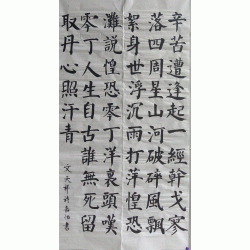 辛苦遭逢起一經幹戈寥
落四周星山河破碎風飄
絮身世浮沉雨打萍惶恐
灘說惶恐零丁洋裏頭嘆
零丁人生自古誰無死留
取丹心照汗青
文天祥詩書